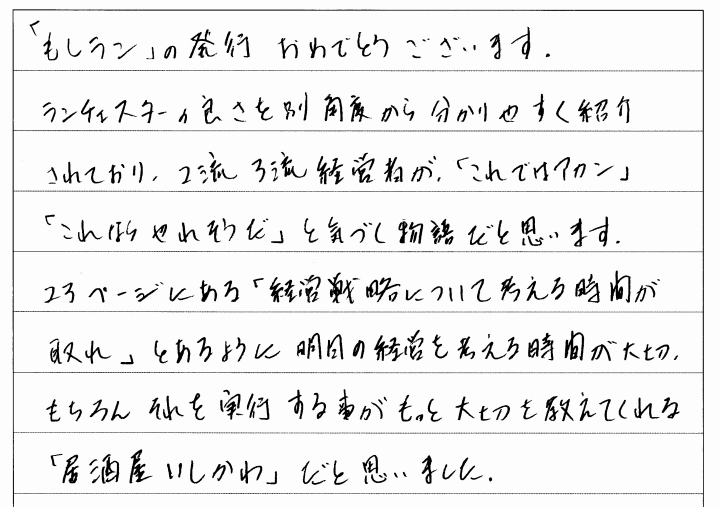 「もしラン」の発行 おめでとうございます.
ランチェスターの良さを別角度から分かりやすく紹介
されており、2流3流経営者が、「これではアカン」
「これならやれそうだ」と気づく物語だと思います.
23ページにある「経営戦略について考える時間が
取れ」とあるように明日の経営を考える時間が大切.
もちろんそれを実行する事がもっと大切を教えてくれる
「居酒屋いしかわ」だと思いました.